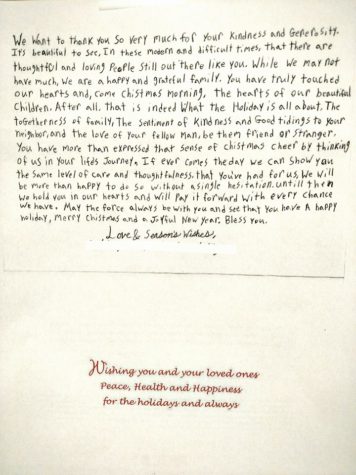 We Want to thank you so very much for your kindness and Generosity.
It's beautiful to see, In these modern and difficult times, that there are
thoughtful and loving People Still out there like you. While we may not
have much, we are a happy and grateful family. You have truly touched
our hearts and, come Chistmas morning, the hearts of our beautiful
Children. After all, that is indeed What the Holiday is all about. The
togetherness of family, The Sentiment of Kindness and Good tidings to your
neighbor, and the love of your fellow man, be them friend or Stranger.
You have more than expressed that sense of chistmas cheer by thinking
of us in your life's Journey. If ever comes the day we can show you
the same level of care and thoughtfulness, that you've had for us, We will
be more than happy to do so without a single hesitation. until then
we hold you in our hearts and will Pay it forward with every chance
we have. May the force always be with you and see that you have A happy
holiday, Merry Chistmas and a Joyful New year. Bless you.
Love & Season's Wishes,
Wishing you and your loved ones
Peace, Health and Happiness
for the holidays and always